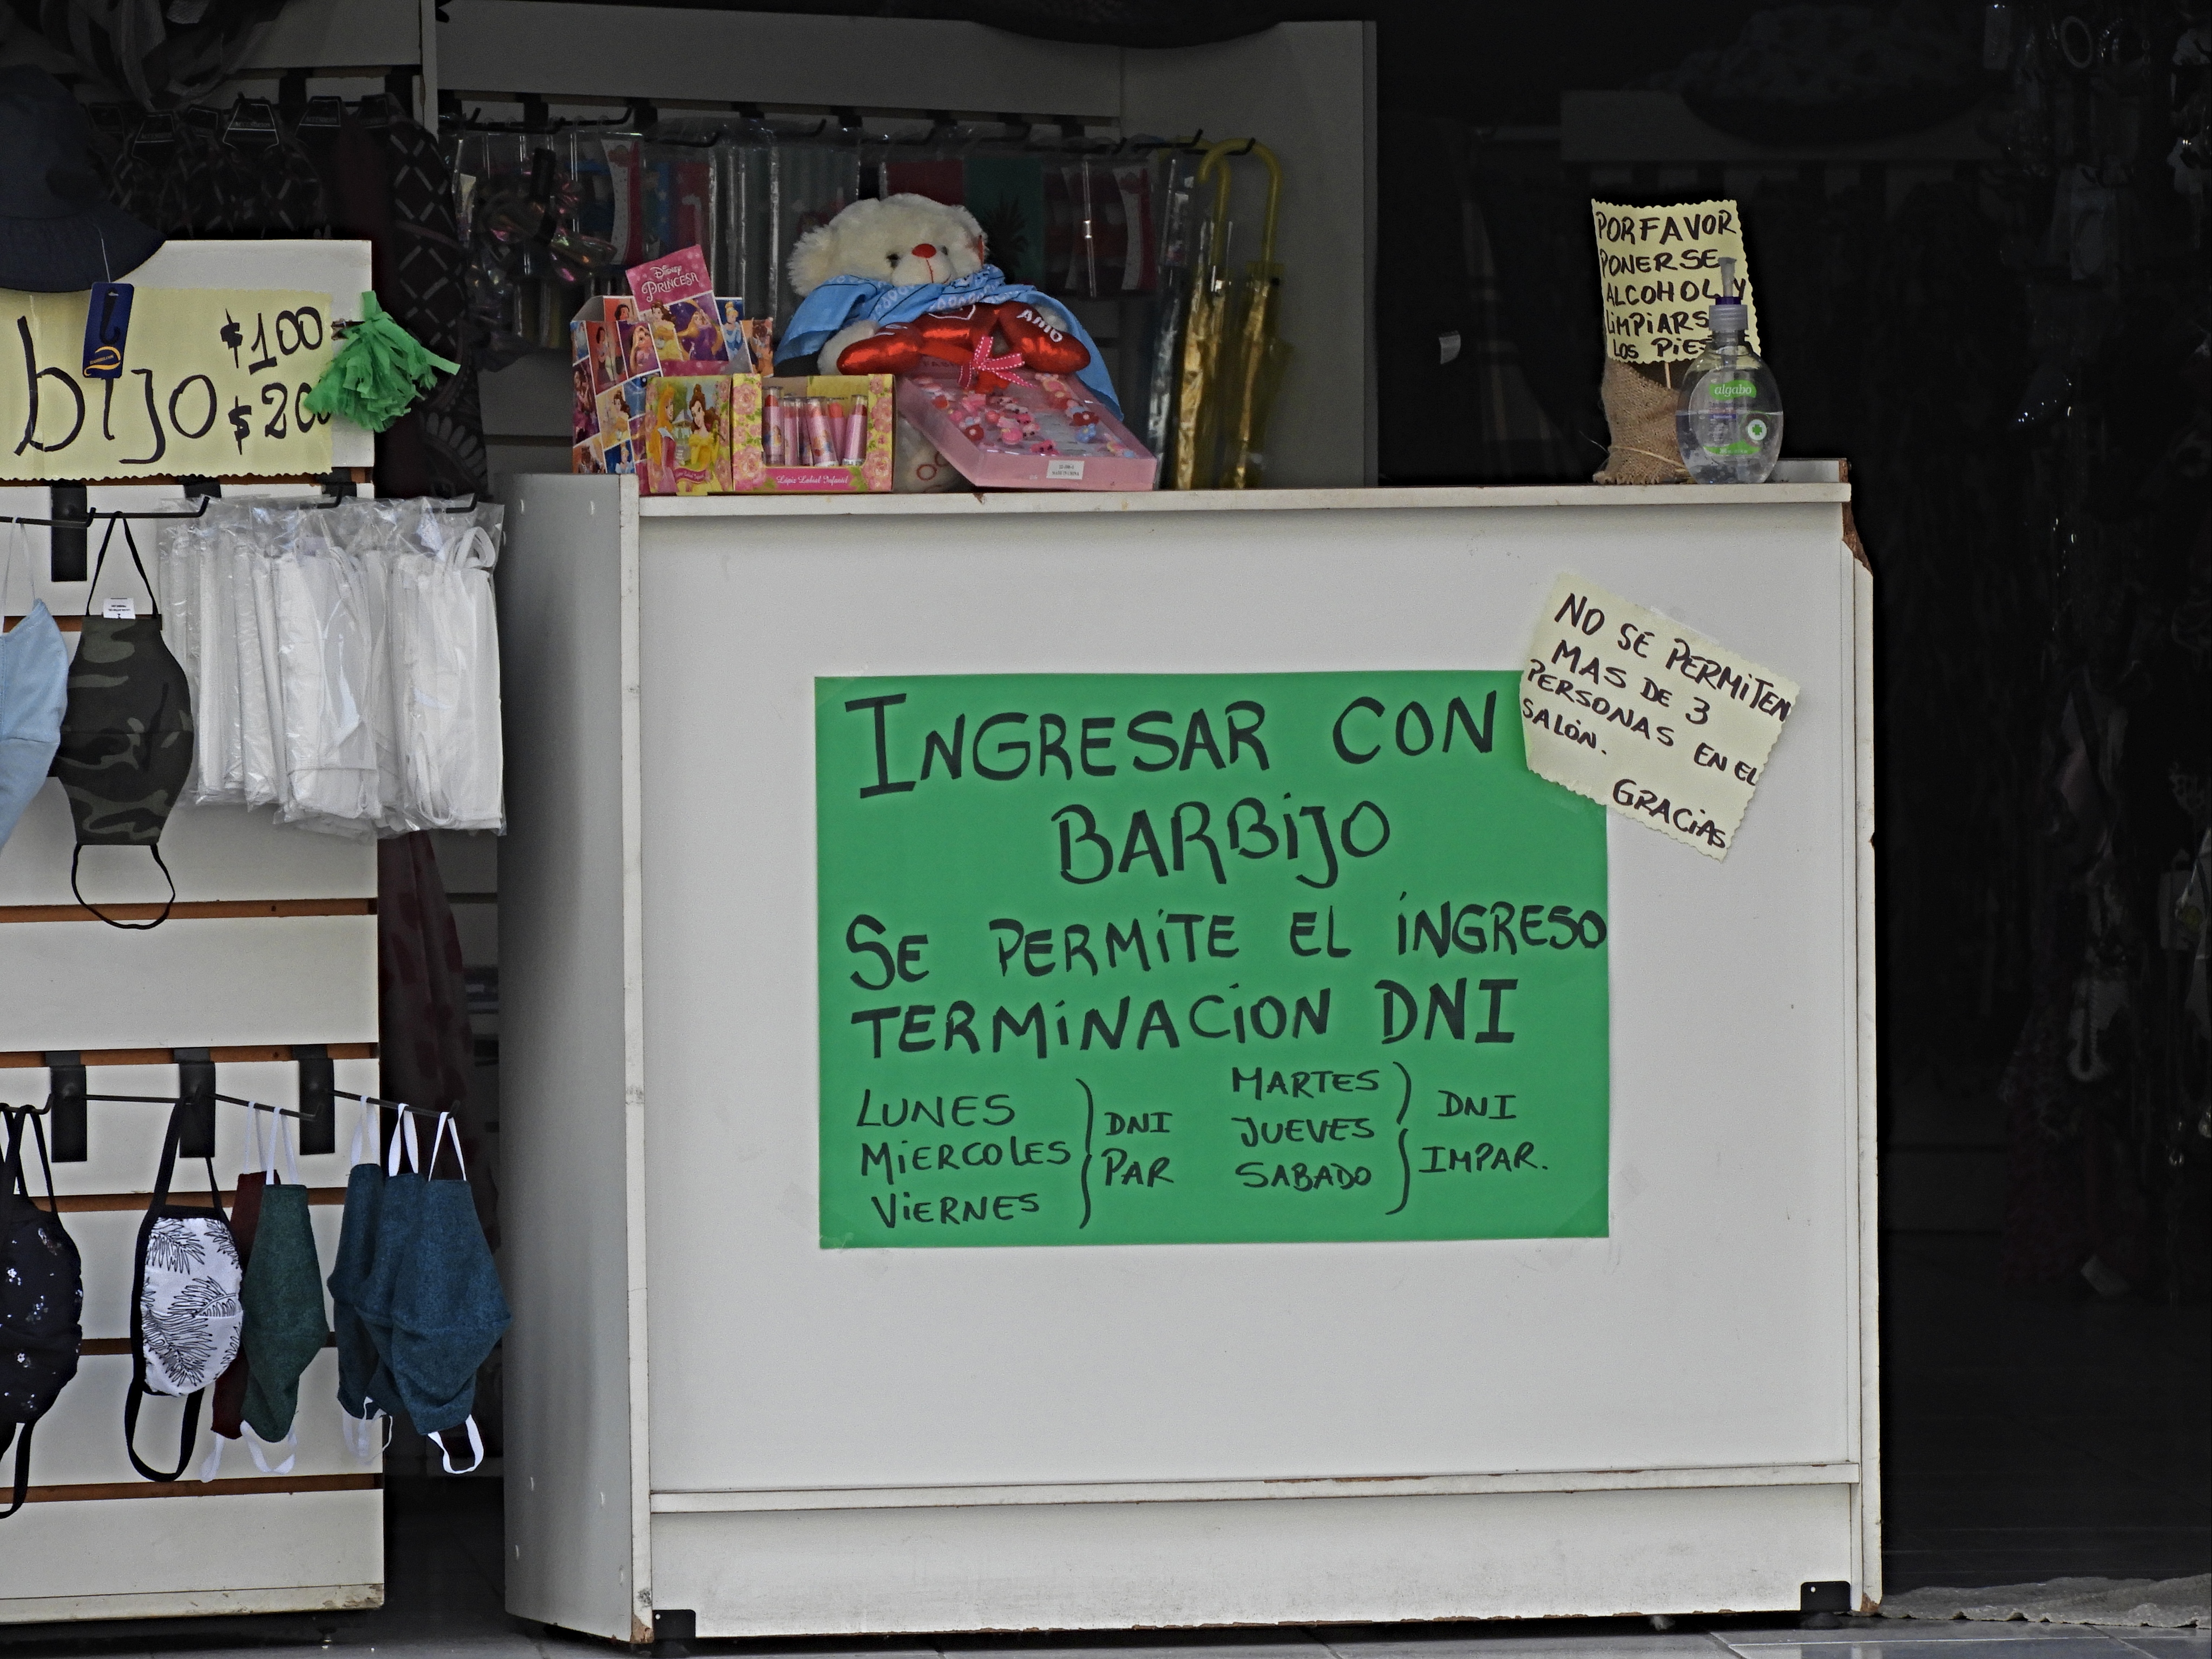 DISNEY
PRINCESA
AMO
POR FAVOR
PONERSE
ALCOHOL Y
LIMPIARS
LOS PIES
algabo
bijo
$100
$200
Lápiz Labial Infantil
NO SE PERMITEN
MAS DE 3
PERSONAS EN EL
SALÓN.
GRACIAS
INGRESAR CON
BARBIJO
SE PERMITE EL INGRESO
TERMINACION DNI
LUNES
MIERCOLES
VIERNES
DNI
PAR
MARTES
JUEVES
SABADO
DNI
IMPAR.